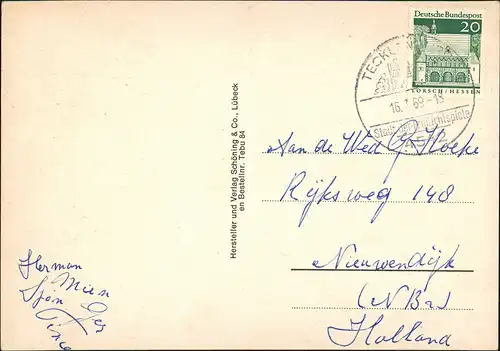 Deutsche Bundespost
20
LORSCH/HESSEN
TECKL
16. 69-18
Hersteller und Verlag Schöning & Co., Lübeck
en Bestellnr. Tebu 84
Aan de Wed G. Hoeke
Rijksweg 148
Nieuwendijk
(N Br)
Holland
Herman
Mien
Sjön